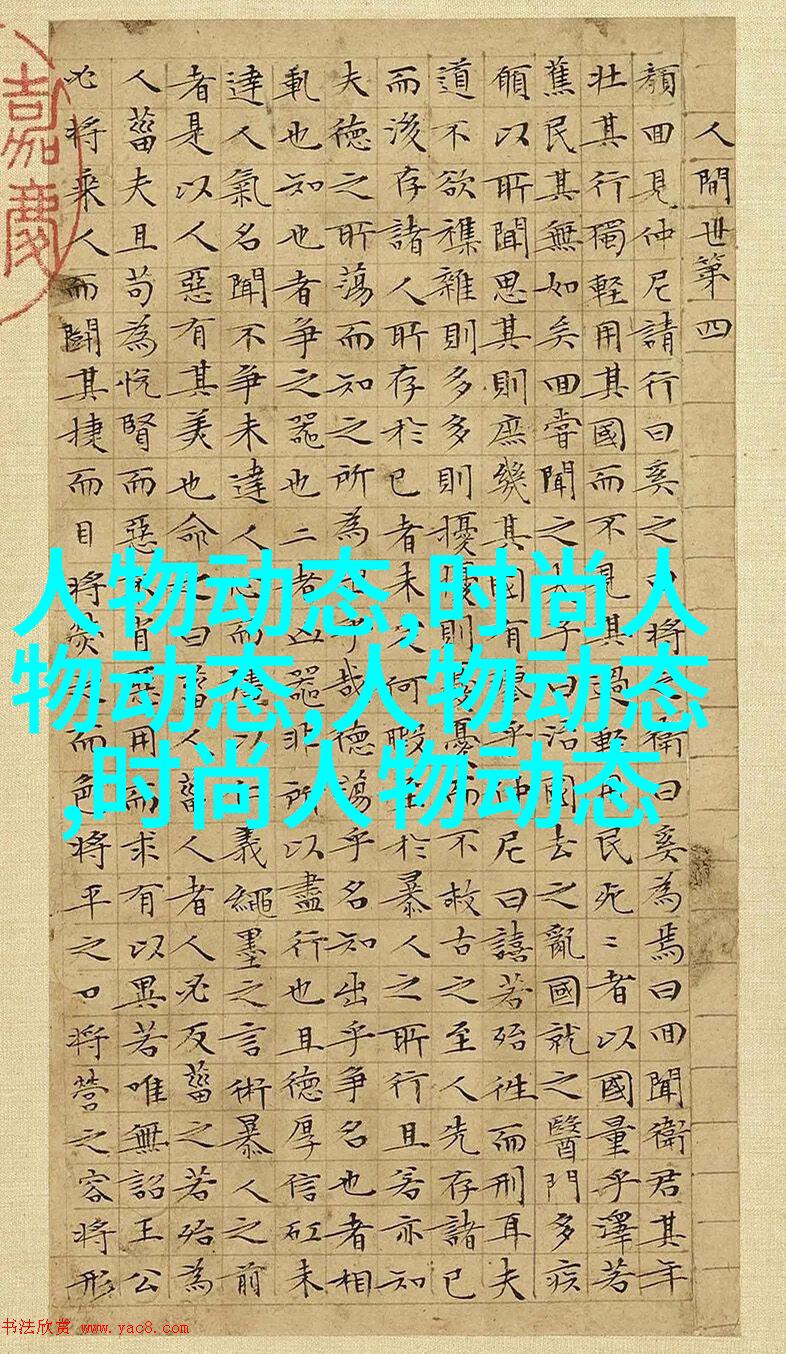 人物动态,时尚人
物动态,人物动态
,时尚人物动态
人間世第四
顏回見仲尼請行曰奚之曰將之衛曰奚為焉曰回聞衛君其年
壯其行獨輕用其國而不見其過輕用民死〻者以國量乎澤若
蕉民其無如矣回嘗聞之夫子曰治國去之亂國就之醫門多疾
願以所聞思其則庶幾其國有瘳乎仲尼曰譆若殆往而刑耳夫
道不欲襍雜則多多則擾擾則憂憂而不救古之至人先存諸已
而後存諸人所存於已者未定何暇至於暴人之所行且若亦知
夫德之所蕩而知之所為出乎哉德蕩乎名知出乎爭名也者相
軋也知也者爭之器也二者凶器非所以盡行也且德厚信矼未
達人氣名聞不爭未達人心而彊以仁義繩墨之言術暴人之前
者是以人惡有其美也命之曰菑人菑人者人必反菑之若殆為
人菑夫且苟為悅賢而惡不肖惡用而求有以異若唯無詔王公
必將乘人而鬭其捷而目將熒之而色將平之口將營之容將形
嘉慶
书法欣赏 www.yac8.com